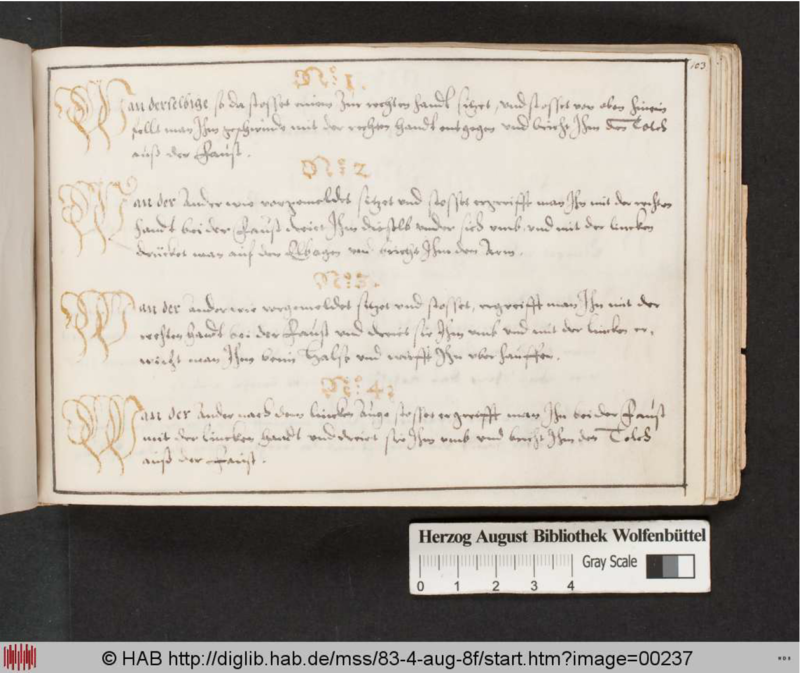 103
No 1.
Wan derselbige so da stosset einem zur rechten handt sitzet, und stosset von oben hinein
sollt man Ihm geschwindt mit der rechten handt entgegen und bricht Ihm den Tolch
auß der Faust.
No 2
Wan der Ander wie vorgemeldet sitzet und stosset ergreifft man Ihn mit der rechten
handt bei der Faust dreiet Ihm dieselb under sich umb und mit der lincken
drücket man auf den Elbogen und bricht Ihm den Arm.
No 3.
Wan der ander wie vorgemeldet sitzet und stosset, ergreifft man Ihn mit der
rechten handt bei der Faust und dreiet sie Ihm umb und mit der lincken er,
wischt man Ihm beim Halse und wirfft Ihn uber hauffen.
No 4
Wan der Ander nach dem lincken Auge stosset ergreifft man Ihn bei der Faust
mit der lincken handt und dreiet sie Ihm umb und bricht Ihm den Tolch
auß der Faust.
Herzog August Bibliothek Wolfenbüttel
Gray Scale
0 1 2 3 4
© HAB http://diglib.hab.de/mss/83-4-aug-8f/start.htm?image=00237